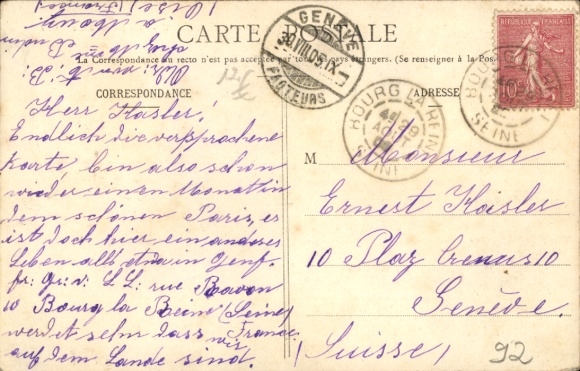 CARTE POSTALE
La Correspondance au recto n'est pas acceptée par tous les pays étrangers. (Se renseigner à la Pos
CORRESPONDANCE
ADRESSE
RÉPUBLIQUE FRANÇAISE
10
GENÈVE
30.VIII.05.IX
FACTEURS
BOURG LA REINE
29
AOUT
SEINE
BOURG LA REINE
SEINE
(Oise) (France)
Herr Kasler!
Endlich die versprochene
Karte, bin also schon
wieder einen Monat in
dem schönen Paris, es
ist doch hier ein anderes
Leben als etwa in Genf.
fr: Gr: v: L.L. rue
10 Bourg la Reine (Seine)
werdet sehn dass wir France
auf dem Lande sind.
M Monsieur
Ernest Kaisler
10 Plaz 10
Genève.
(Suisse)
92